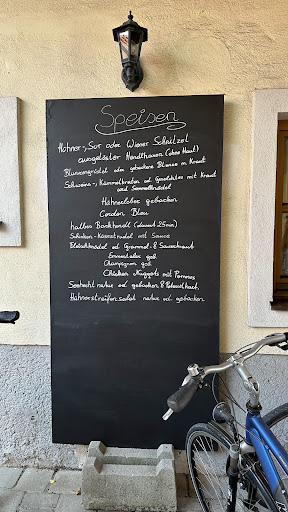 Speisen
Hühner-, Sur oder Wiener Schnitzel
ausgelöster Hendlhaxen (ohne Haut)
Blunzengröstel oder gebackene Blunze m. Kraut
Schweins-, Kümmelbraten od. Geselchtes mit Kraut
und Semmelknödel
Hühnerleber gebacken
Cordon Bleu
halbes Backhendl (dauert 25min)
Schinken-Käsenockerl mit Sauce
Blutwurstknödel od. Grammel- & Sauerkraut
Emmentaler geb.
Champignon geb.
Chicken Nuggets mit Pommes
Seehecht natur od. gebacken & Petersilkart.
Hühnerstreifensalat natur od. gebacken